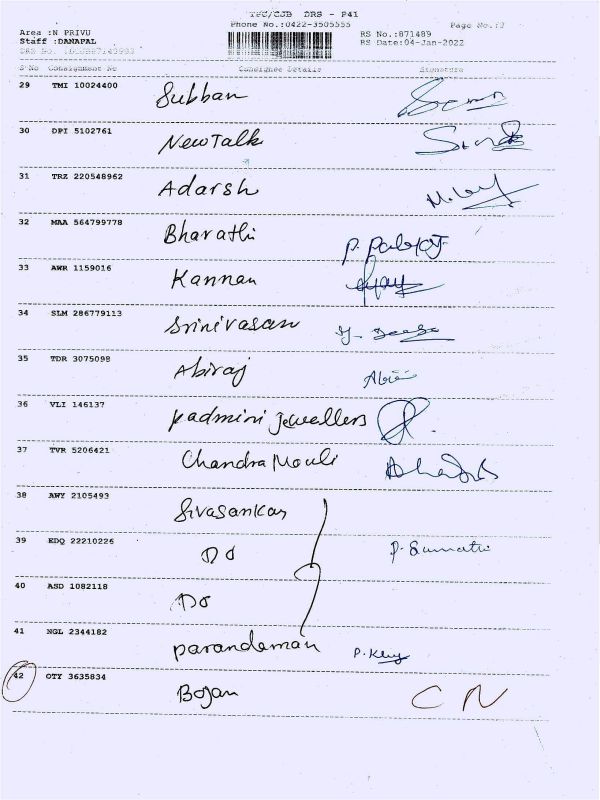 TPC/CJB DRS - P41
Phone No.:0422-3505555 Page No.:3
Area :N PRIVU RS No.:871489
Staff :DANAPAL RS Date:04-Jan-2022
S'No Consignment No Consignee Details Signature
29 TMI 10024400 Subban
30 DPI 5102761 New Talk
31 TRZ 220548962 Adarsh
32 MAA 564799778 Bharathi
33 AWR 1159016 Kannan
34 SLM 286779113 Srinivasan
35 TDR 3075098 Abiraj Abi
36 VLI 146137 Padmini Jewellers
37 TVR 5206421 Chandra Mouli
38 AWY 2105493 Sivasankar
39 EDQ 22210226 DO P. Sumathi
40 ASD 1082118 DO
41 NGL 2344182 Parandaman
42 OTY 3635834 Bojan CN